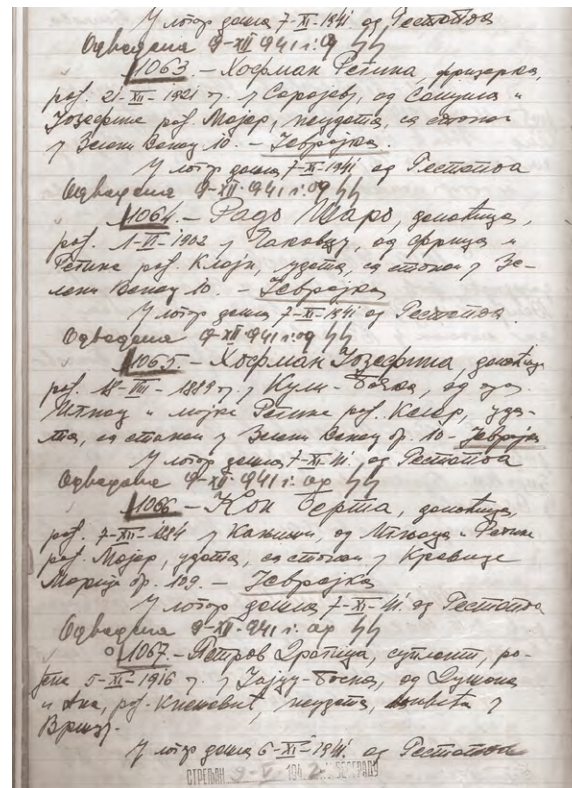 У логор дошла 7-XI-1941 од Гестапоа
Одведена 9-XII 941 г. од SS
1063.– Хофман Регина, фризерка,
рођ. 21-XII-1921 г. у Сарајеву, од Самуила и
Јозефине рођ. Мајер, неудата, са станом
у Зелени Венац 10. – Јеврејка.
У логор дошла 7-XI-1941 од Гестапоа
Одведена 9-XII 941 г. од SS
1064.– Радо Шаро, домаћица,
рођ. 1-VI-1902 у Чаковцу, од Фрица и
Регине рођ. Клајн, удата, са станом у Зе-
лени Венац 10. – Јеврејка
У логор дошла 7-XI-1941 од Гестапоа.
Одведена 9-XII 941 г. од SS
1065.– Хофман Јозефина, домаћица
рођ. 18-VIII-1889 г. у Кули-Бачка, од
и мајке Регине рођ. уда-
та, са станом у Зелени Венац бр. 10 – Јеврејка
У логор дошла 7-XI-41. од Гестапоа
Одведена 9-XII 941 г. од SS
1066 – Кон Берта, домаћица,
рођ. 7-XII-1884 у од и Регине
рођ. Мајер, удата, са станом у
Марије бр. 109. – Јеврејка
У логор дошла 7-XI-41. од Гестапоа
Одведена 9-XII 941 г. од SS
1067.– Петров Драгица, ро-
ђена 5-XI-1916 г. у Јајцу-Босна, од Душана
и Ане, рођ. Кнежевић, неудата, у
У логор дошла 6-XI-1941. од Гестапоа
СТРЕЉАН 9-V 1942. У БЕОГРАДУ